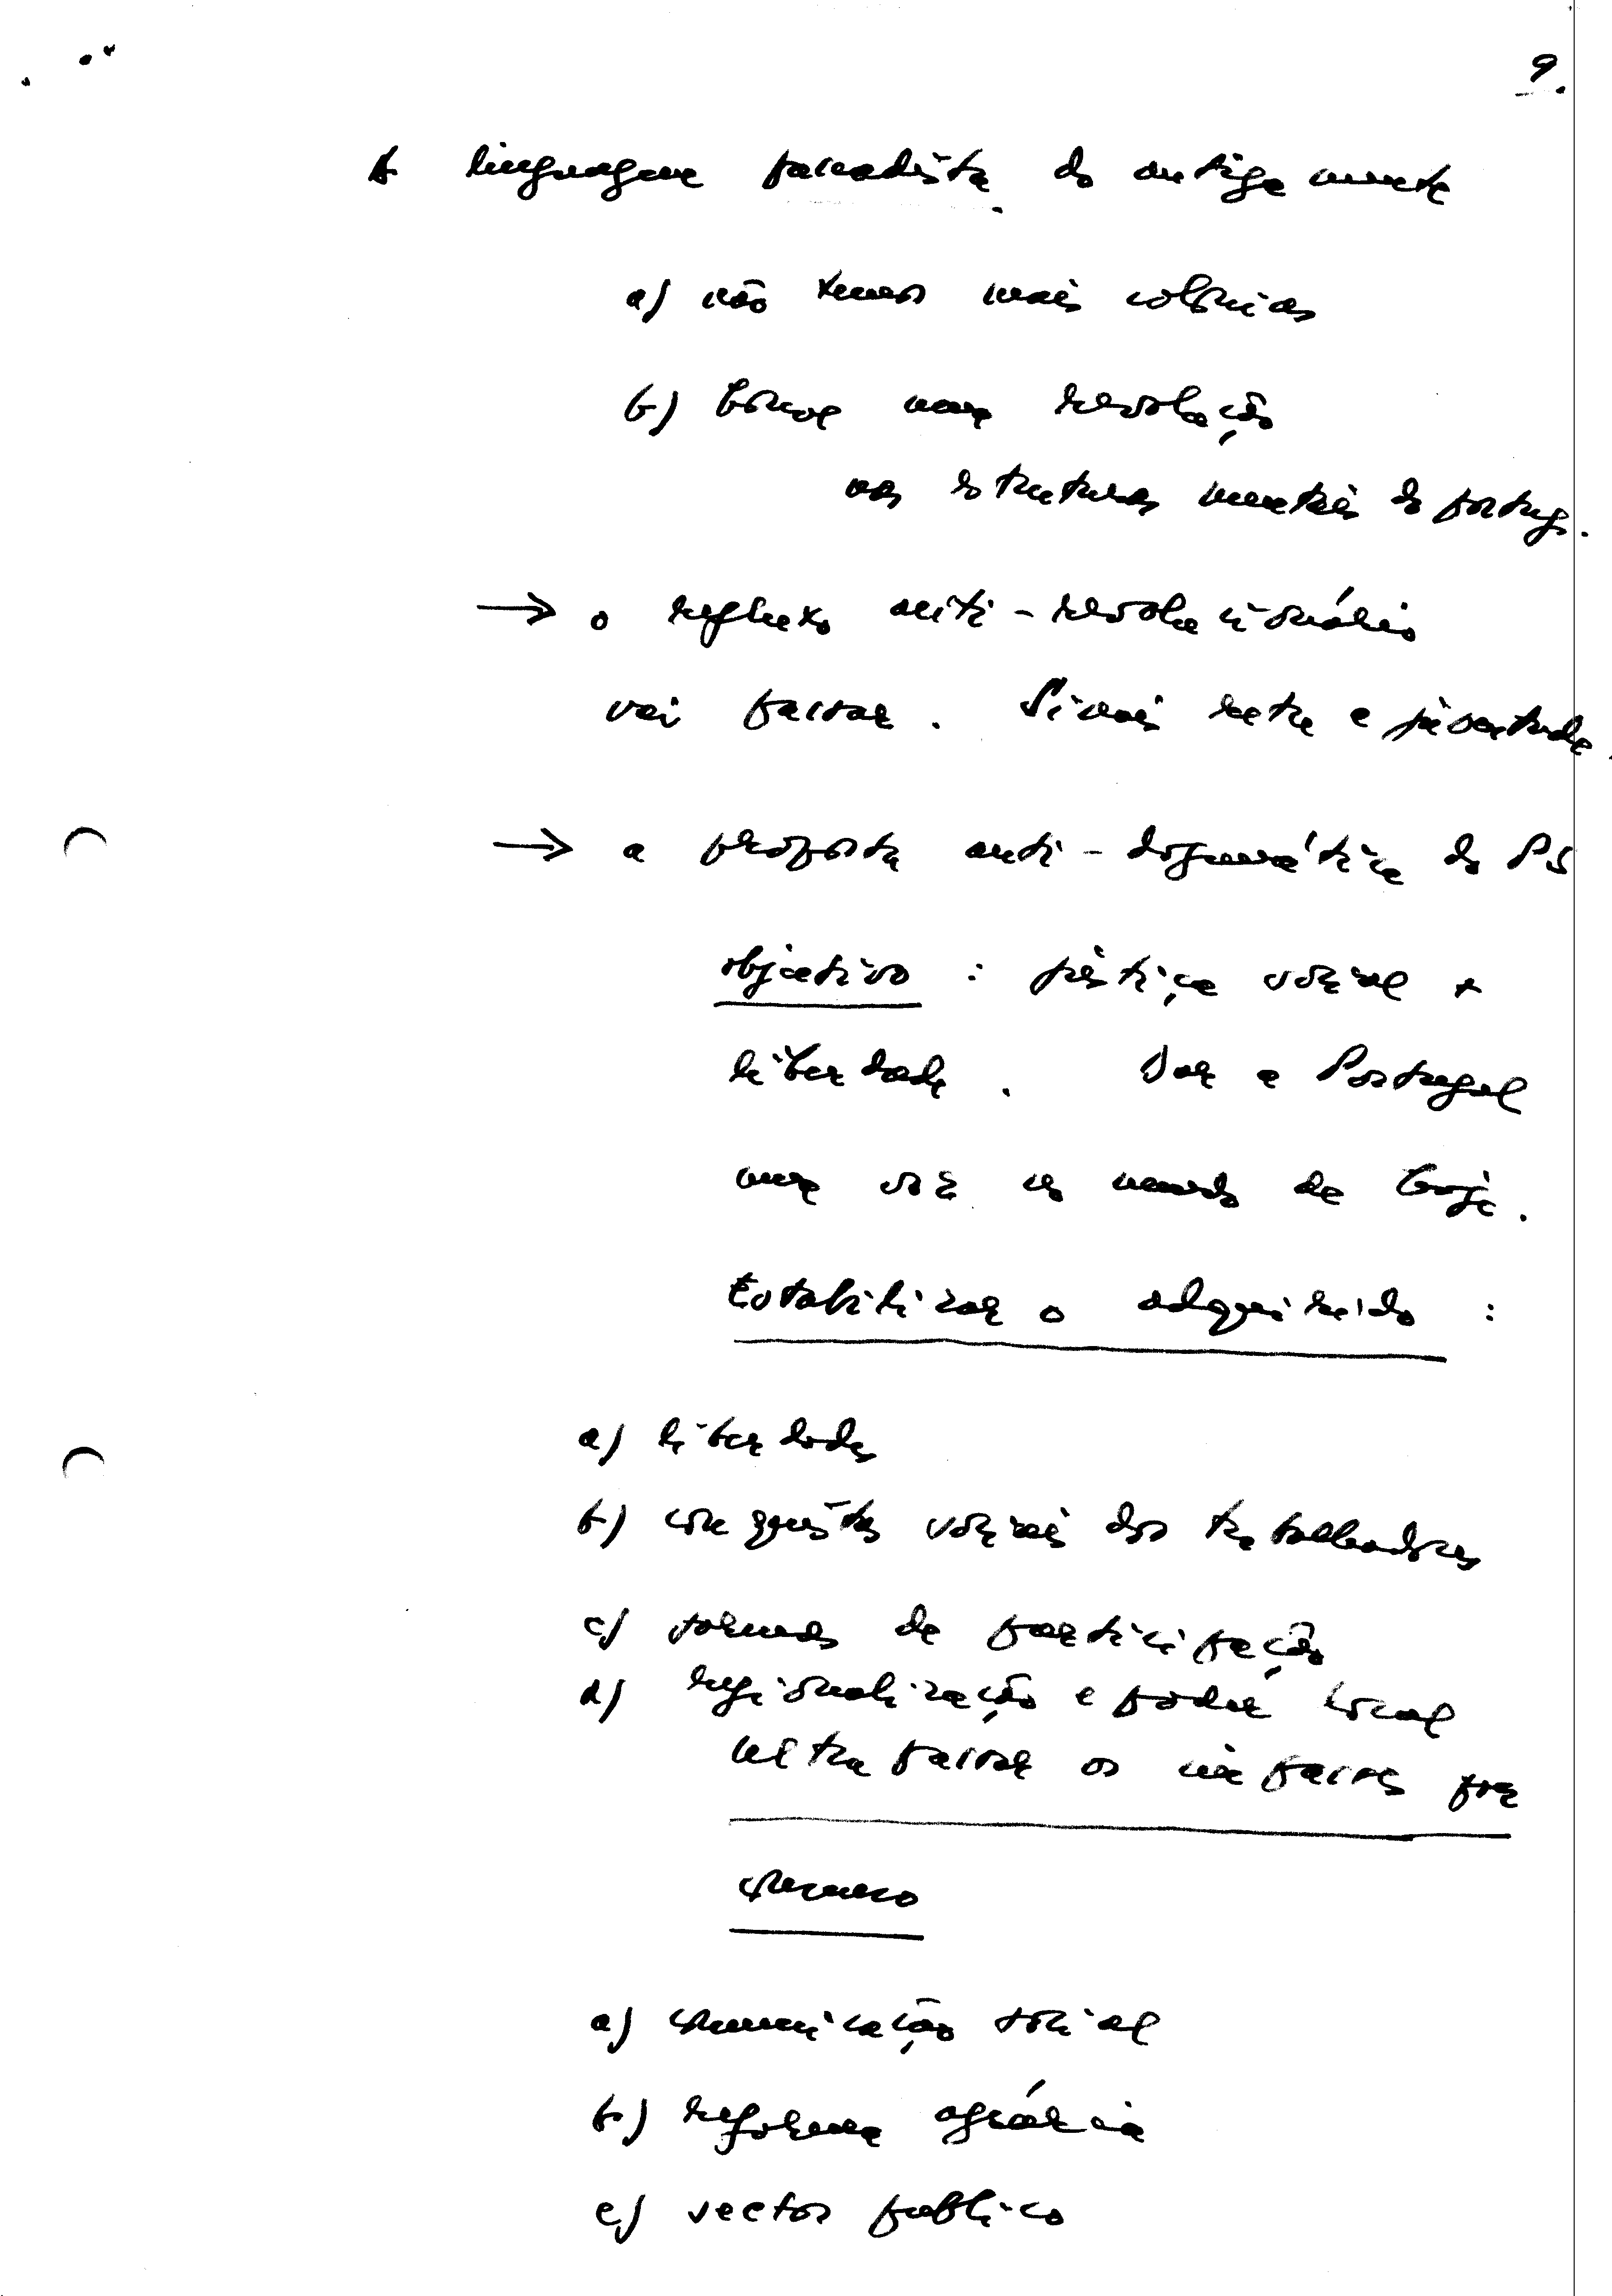 9.
A linguagem passadista do antigamente
a) não temos mais colónias
b) houve uma revolução
nas estruturas mentais do portug.
→ o refluxo anti-revolucionário
vai passar. Sinais e juventude.
→ a proposta anti-dogmática do PS
objectivo : justiça social +
liberdade. Dar a Portugal
uma voz no mundo de hoje.
Estabilizar o adquirido :
a) liberdades
b) conquistas sociais dos trabalhadores
c) formas de participação
d) regionalização e poder local
ultrapassar os impasses por
consenso
a) comunicação social
b) reforma agrária
c) sector público